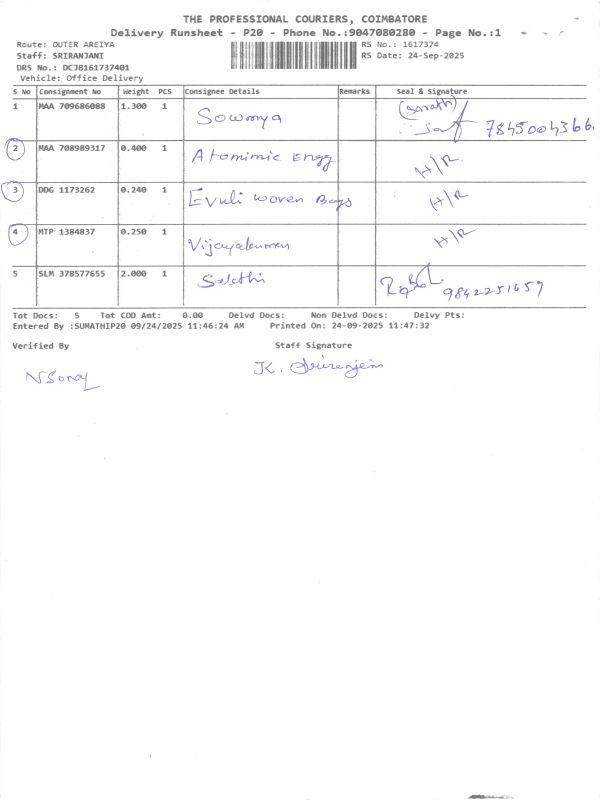 THE PROFESSIONAL COURIERS, COIMBATORE
Delivery Runsheet - P20 - Phone No.:9047080280 - Page No.:1
Route: OUTER AREIYA RS No.: 1617374
Staff: SRIRANJANI RS Date: 24-Sep-2025
DRS No.: DCJB161737401
Vehicle: Office Delivery
S No Consignment No Weight PCS Consignee Details Remarks Seal & Signature
1 MAA 709686088 1.300 1 Sowmya (Sarath) 7845004366.
2 MAA 708989317 0.400 1 Atomimic Engg H/R
3 DDG 1173262 0.240 1 Evuli Woven Bags H/R
4 MTP 1384837 0.250 1 Vijayakumar H/R
5 SLM 378577655 2.000 1 Sakthi 9842251659
Tot Docs: 5 Tot COD Amt: 0.00 Delvd Docs: Non Delvd Docs: Delvy Pts:
Entered By :SUMATHIP20 09/24/2025 11:46:24 AM Printed On: 24-09-2025 11:47:32
Verified By Staff Signature
K.